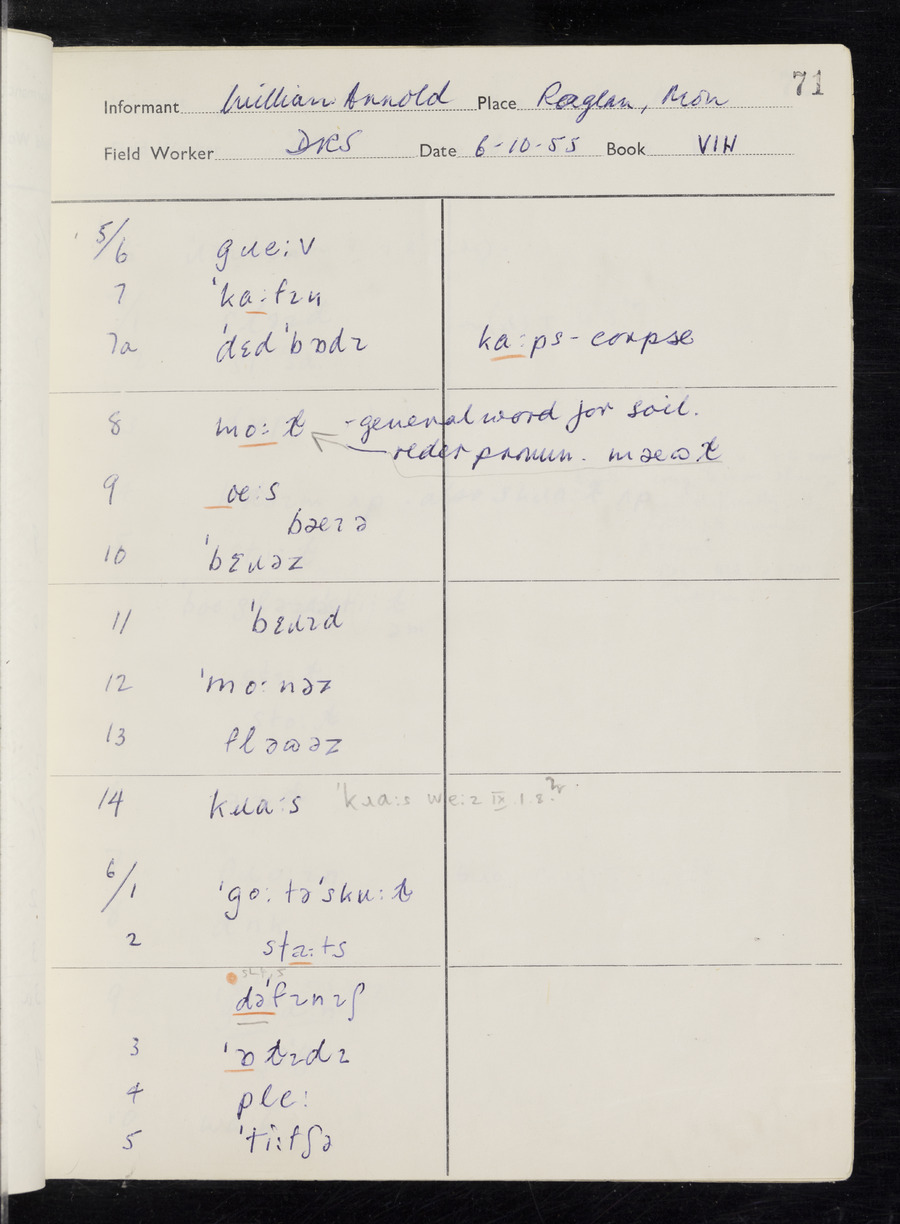 71
Informant William Arnold Place Raglan, Mon
Field Worker DRS Date 6-10-55 Book VIII
5/6 gɹe:v
7 ˈka:fɪn
7a ˈdɛdˈbɒdɪ ka:ps - corpse
8 mo:ɫd - general word for soil.
older pronun. məʊɫd
9 ɒe:s
bəeɪə
10 ˈbɛɹəz
11 ˈbɛɹɪd
12 ˈmo:nəz
13 flaʊəz
14 kɹa:s ˈkɹa:s we:z IX.1.8.?
6/1 ˈgo: tə ˈsku:l
2 sta:ts
dəˈfɪnɪʃ
3 ˈɒɫɪdɪ
4 ple:
5 ˈti:tʃə